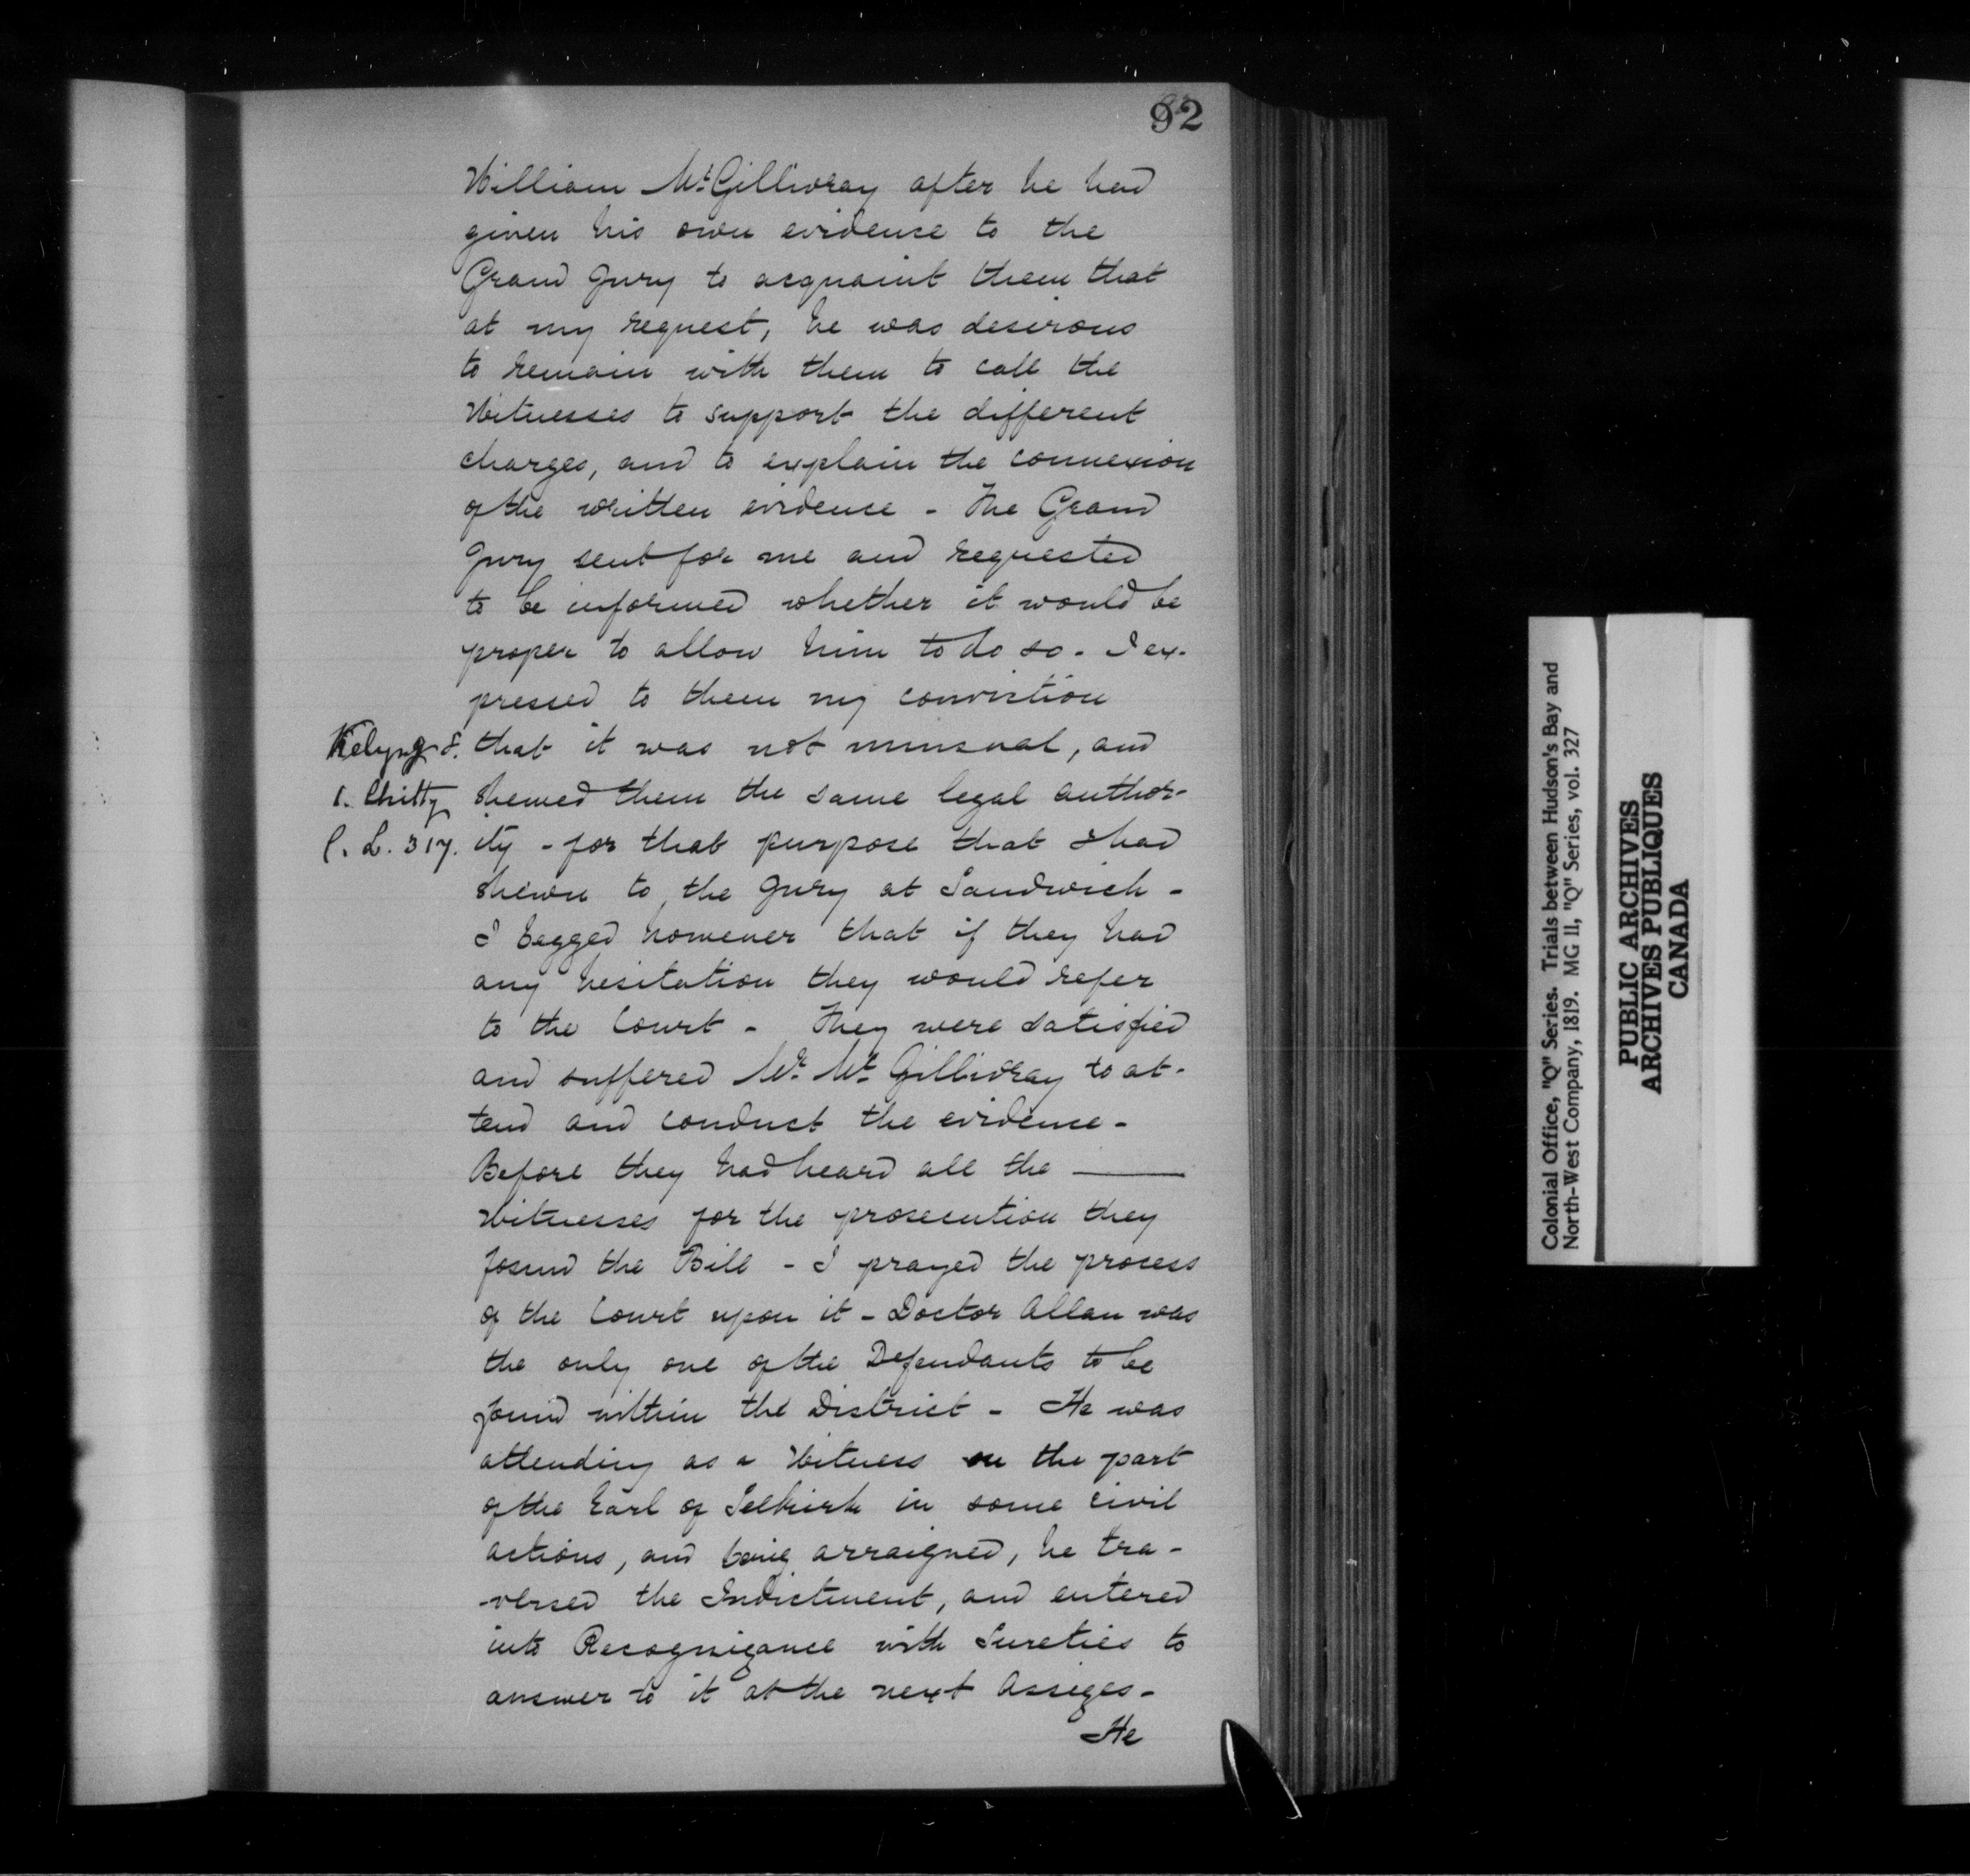 92
William McGillivray after he had
given his own evidence to the
Grand Jury to acquaint them that
at my request, he was desirous
to remain with them to call the
Witnesses to support the different
charges, and to explain the connexion
of the written evidence - The Grand
Jury sent for me and requested
to be informed whether it would be
proper to allow him to do so. I ex-
pressed to them my conviction
Kelyng 8. that it was not unusual, and
1. Chitty shewed them the same legal author-
C. L. 317. ity - for that purpose that I had
shewn to the Jury at Sandwich -
I begged however that if they had
any hesitation they would refer
to the Court - They were satisfied
and suffered Mr. McGillivray to at-
tend and conduct the evidence -
Before they had heard all the ——
Witnesses for the prosecution they
found the Bill - I prayed the process
of the Court upon it - Doctor Allan was
the only one of the Defendants to be
found within the District - He was
attending as a Witness on the part
of the Earl of Selkirk in some civil
actions, and being arraigned, he tra-
-versed the Indictment, and entered
into Recognizance with Sureties to
answer to it at the next Assizes -
He
Colonial Office, "Q" Series. Trials between Hudson's Bay and
North-West Company, 1819. MG 11, "Q" Series, vol. 327
PUBLIC ARCHIVES
ARCHIVES PUBLIQUES
CANADA